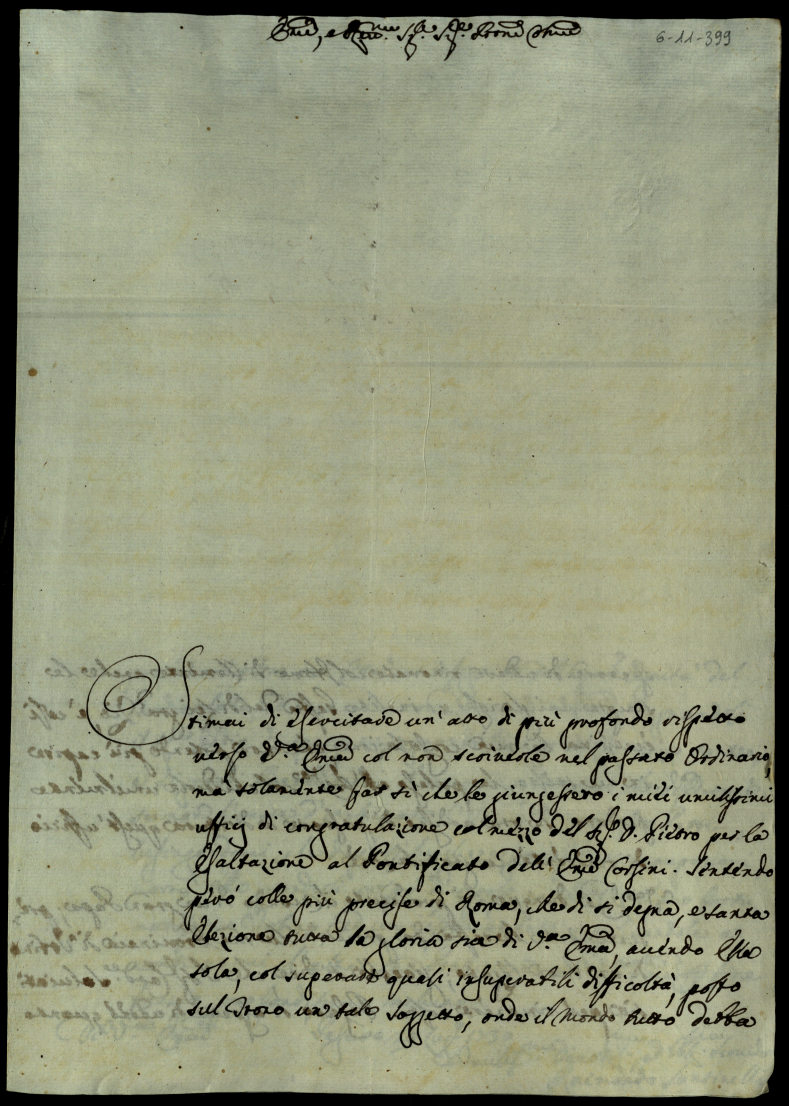 Em̃o, e Rm̃o Sig.r Sig.r Proñe Cm̃o
6-11-399
Stimai di esercitare un' atto di più profondo rispetto
verso V.a Em̃a col non scrivele nel passato Ordinario,
mà solamente far sì che le giungessero i miei umilissimi
ufficj di congratulazione col mezzo del Sig.r D. Pietro per la
Esaltazione al Pontificato dell' Em̃o Corsini. Sentendo
però colle più precise di Roma, che di sì degna, e santa
Elezione tutta la gloria sia di V.a Em̃a, avendo Ella
sola, col superare quasi insuperabili difficoltà, posto
sul Trono un tale Soggetto, onde il Mondo tutto debba